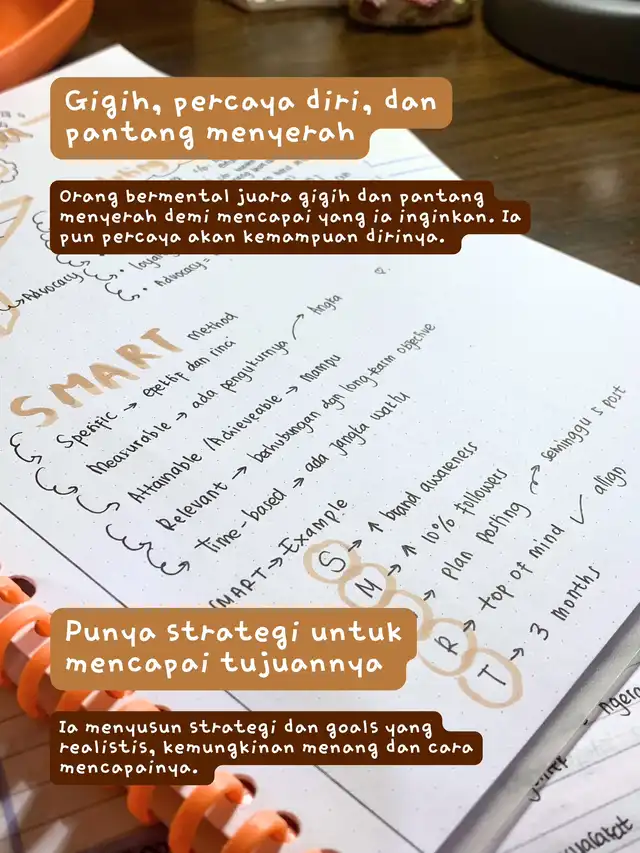 Gigih, percaya diri, dan
pantang menyerah
Orang bermental juara gigih dan pantang
menyerah demi mencapai yang ia inginkan. Ia
pun percaya akan kemampuan dirinya.
Advocacy
Advocacy =
SMART Method
Spesific → spesifik dan rinci
Measurable → ada pengukurnya → Angka
Attainable / Achieveable → Mampu
Relevant → berhubungan dgn long-term objective
Time-based → ada jangka waktu
SMART → Example
S → ↑ brand awareness
M → ↑ 10% followers
→ plan posting → seminggu 5 post
R → top of mind ✓ align
T → 3 months
Punya strategi untuk
mencapai tujuannya
Ia menyusun strategi dan goals yang
realistis, kemungkinan menang dan cara
mencapainya.